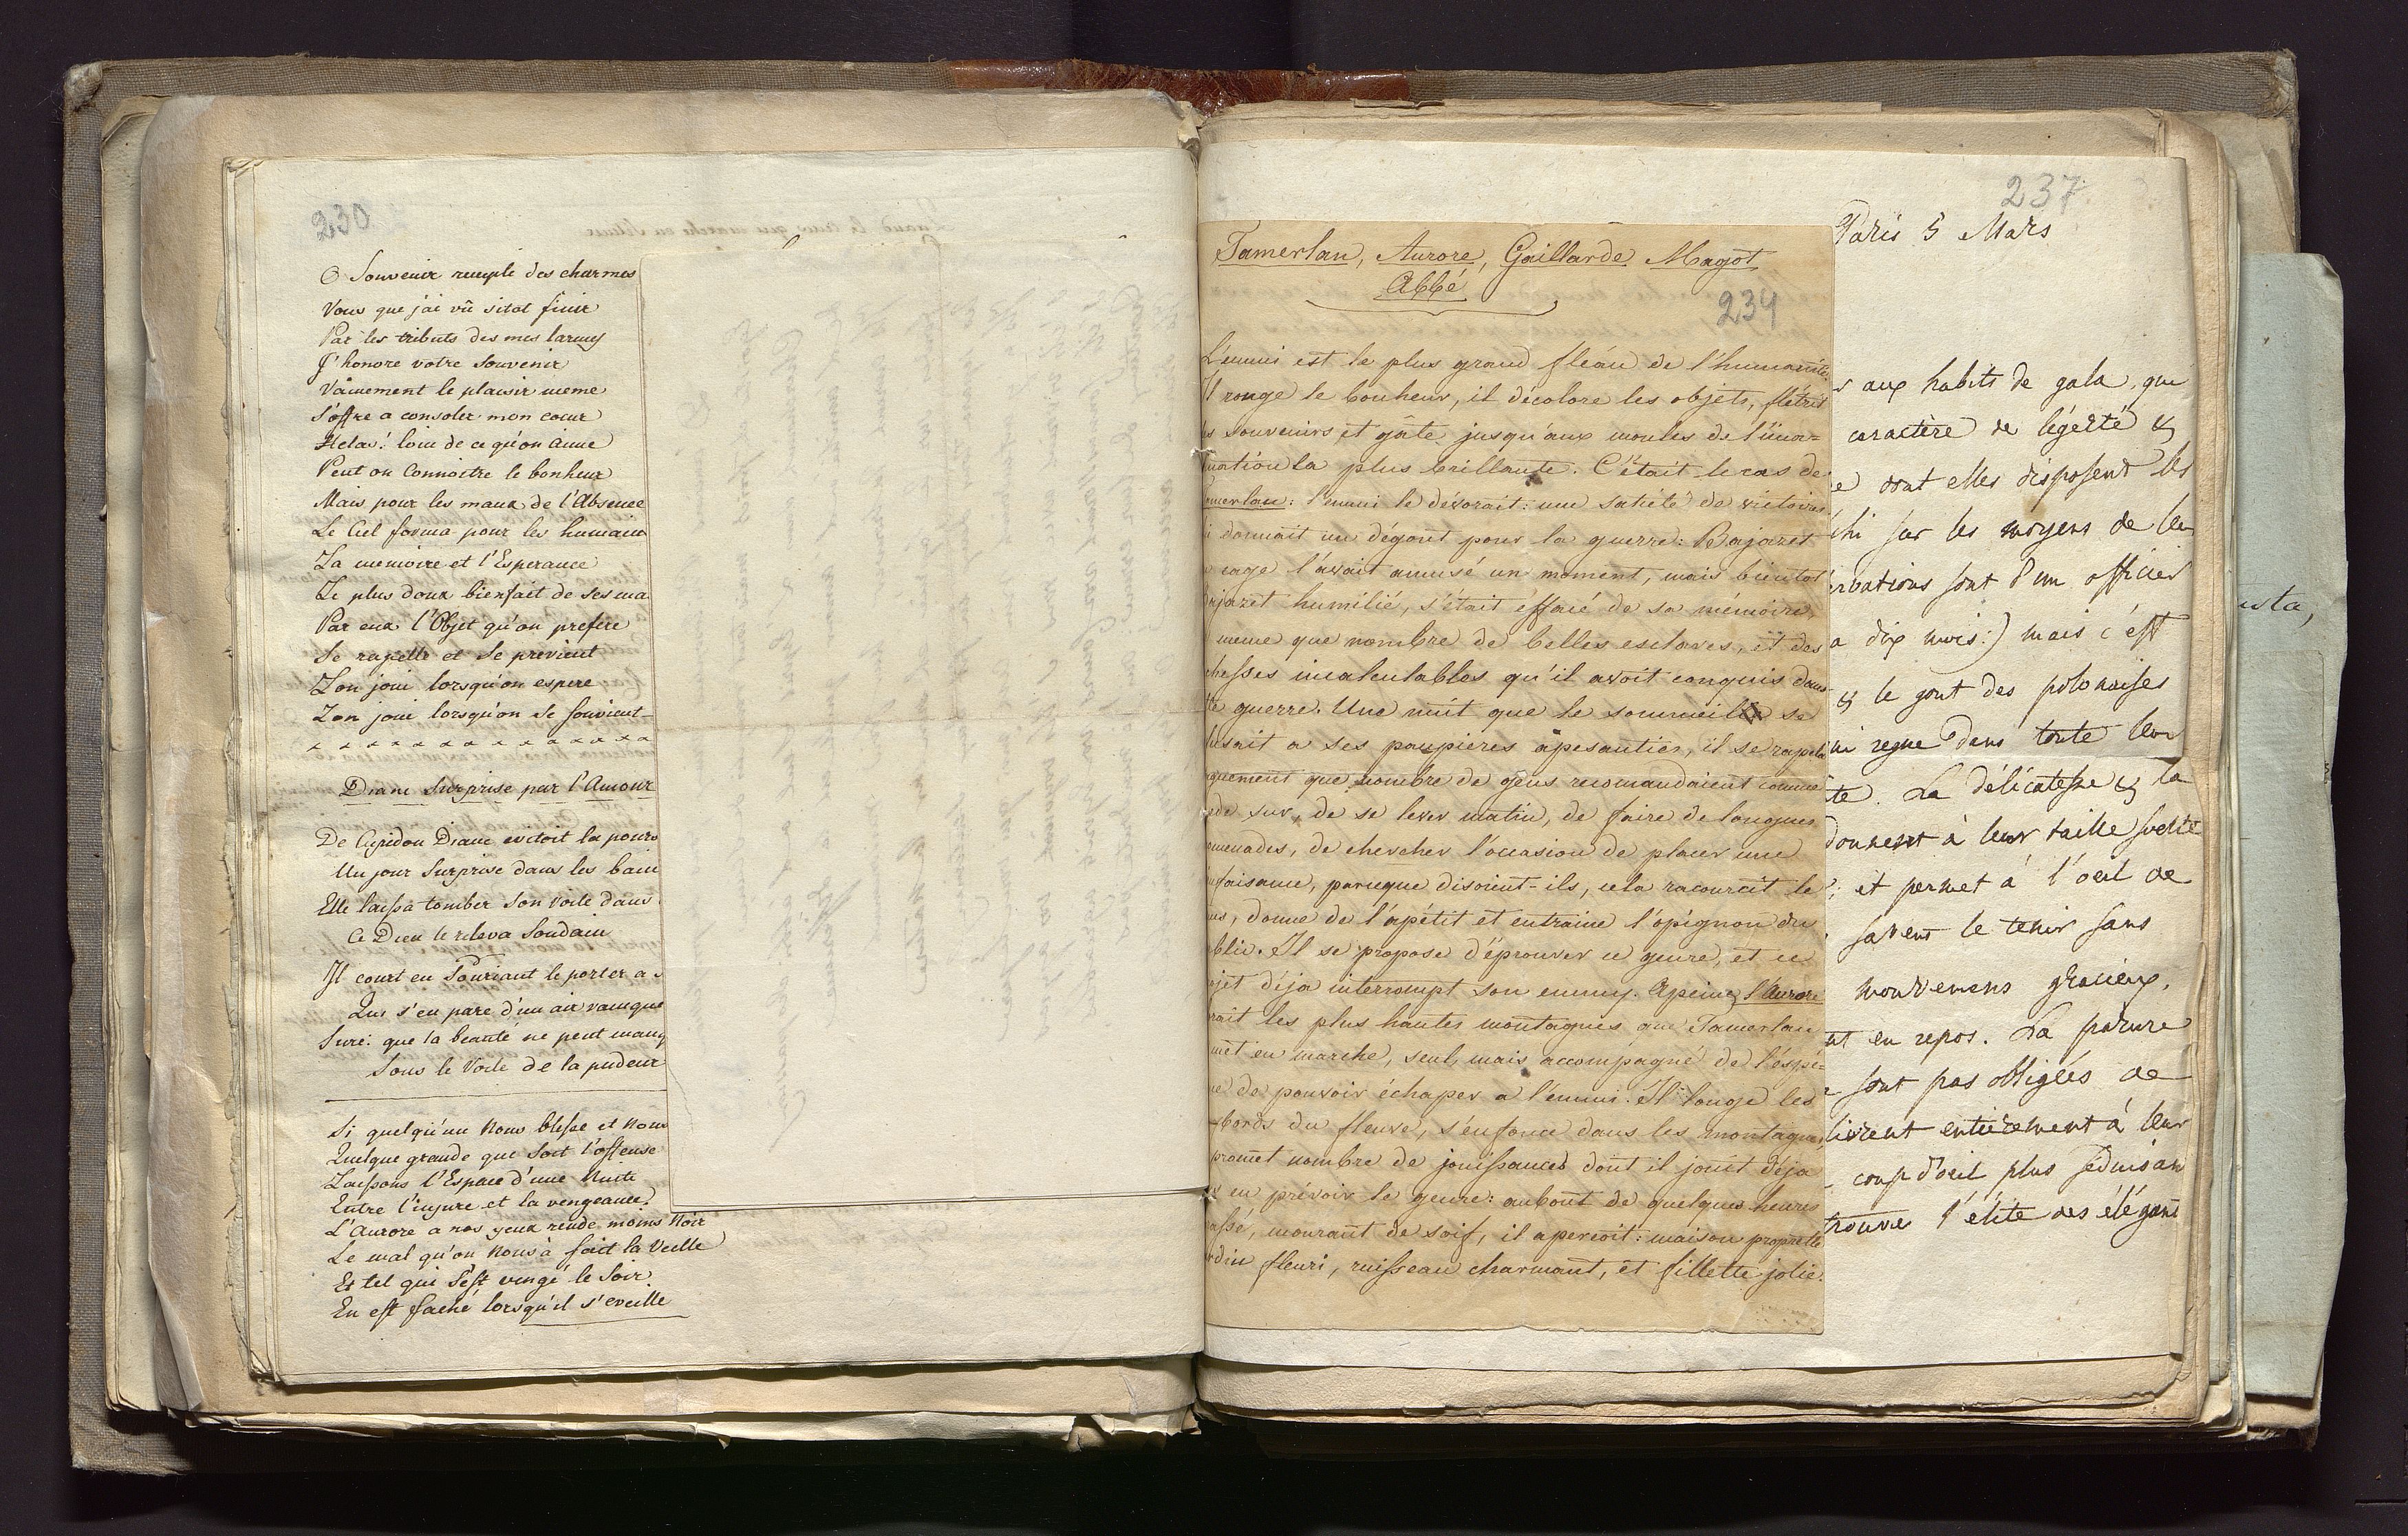 230
O Souvenir remplé des charmes
Vous que j'ai vû sitot finir
Par les tributs des mes larmes
J'honore votre Souvenir
Vainement le plaisir meme
S'offre a consoler mon coeur
Helas! loin de ce qu'on aime
Peut on Connoitre le bonheur
Mais pour les maux de l'Absence
Le Ciel forma pour les humain
La memoire et l'Esperance
Le plus doux bienfait de ses ma
Par eux l'Objet qu'on prefere
Se rapelle et Se previent
L'on joui lorsqu'on espere
L'on joui lorsqu'on Se souvient
Diane Surprise par l'Amour
De Cupidon Diane evitoit la pours
Un jour Surprise dans les bain
Elle laissa tomber Son Voile dans
Ce Dieu le releva Soudain
Il court en Souriant le porter a
Qui s'en pare d'un air vainque
Sure: que la beauté ne peut manq
Sous le Voile de la pudeur
Si quelqu'un Nous blesse et Nous
Quelque grande que Soit l'offense
Laissons l'Espace d'une Nuite
Entre l'injure et la vengeance
L'Aurore a nos yeux rende moins Noir
Le mal qu'on Nous à fait la Veille
Et tel qui s'est vengé le Soir
En est faché lorsqu'il s'eveille
Tamerlan, Aurore, Gaillarde Magot
Abbé
234
L'ennui est le plus grand fleau de l'humanité
Il ronge le bonheur, il décolore les objets, flétrit
s souvenirs et gâte jusqu'aux moules de l'imagi-
nation la plus brillante. C'était le cas de
amerlan: l'ennui le dévorait: une satiété de victoires
i donnait un dégout pour la guerre: Bajazet
cage l'avait amusé un moment, mais bientot
ajazet humilié, s'était effacé de sa mémoire,
meme que nombre de belles esclaves, et des
chesses incalculables qu'il avoit conquis dans
te guerre. Une nuit que le sommeil se
fusait a ses paupieres apesanties, il se rapela
guement que nombre de gens recomandaient comme
ede sur, de se lever matin, de faire de longues
omenades, de chercher l'occasion de placer une
nfaisance, parceque disoient-ils, cela racourcit le
ms, donne de l'apétit et entraine l'opignon du
blic. Il se propose d'éprouver ce genre, et ce
ojet déja interrompt son ennuy. Apeine l'Aurore
rait les plus hautes montagnes que Tamerlan
met en marche, seul, mais accompagné de l'éspé-
ce de pouvoir échaper a l'ennui. Il longe les
bords du fleuve, s'enfonce dans les montagnes,
promet nombre de jouissances dont il jouit déja
en prévoir le genre: aubout de quelques heures
assé, mourant de soif, il aperçoit: maison proprette
rdin fleuri, ruisseau charmant, et fillette jolie.
237
Paris 5 Mars
s aux habits de gala, que
caractère de légérté &
e dont elles disposent les
chi sur les moyens de leu
ervations sont d'un officier
a dix mois:) mais c'est
& le gout des polonaises
ui regne dans toute leur
te. La délicatesse & la
donnent à leur taille svelte
; et permet à l'oeil de
savent le tenir sans
mouvemens gracieux,
nt en repos. La parure
sont pas obligées de
livrent entièrement à leur
coup d'oeil plus séduisan
trouve l'élite des élégant
usta,